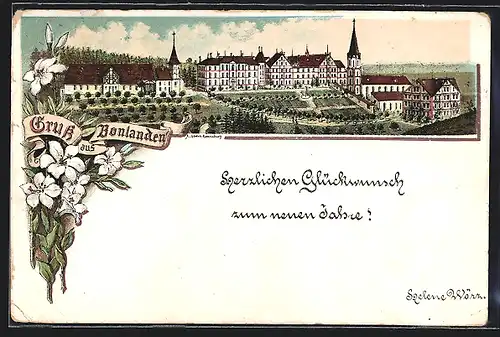 Gruß
aus
Bonlanden
Herzlichen Glückwunsch
zum neuen Jahre!
Helene Wörz.